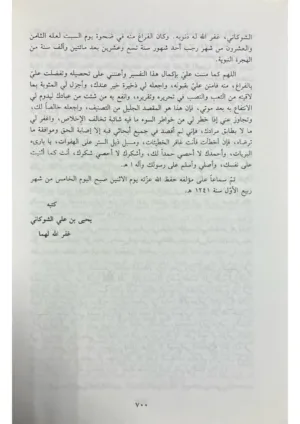 الشوكاني، غفر الله له ذنوبه. وكان الفراغ منه في ضحوة يوم السبت لعله الثامن
والعشرون من شهر رجب أحد شهور سنة تسع وعشرين بعد مائتين وألف سنة من
الهجرة النبوية.
اللهم كما مننت عليّ بإكمال هذا التفسير وأعنتني على تحصيله وتفضلت عليّ
بالفراغ، منه فامنن عليّ بقبوله، واجعله لي ذخيرة خير عندك، وأجزل لي المثوبة بما
لاقيته من التعب والنصب في تحريره وتقريره، وانفع به من شئت من عبادك ليدوم لي
الانتفاع به بعد موتي، فإن هذا هو المقصد الجليل من التصنيف، واجعله خالصاً لك،
وتجاوز عني إذا خطر لي من خواطر السوء ما فيه شائبة تخالف الإخلاص، واغفر لي
ما لا يطابق مرادك، فإني لم أقصد في جميع أبحاثي فيه إلا إصابة الحق وموافقة ما
ترضاه، فإن أخطأت فأنت غافر الخطيئات، ومسبل ذيل الستر على الهفوات، يا بارىء
البريات، وأحمدك لا أحصي حمداً لك، وأشكرك لا أحصي شكرك، أنت كما أثنيت
على نفسك، وأصلي وأسلم على رسولك وآله اهـ.
تمّ سماعاً على مؤلفه حفظ الله عزّته يوم الاثنين صبح اليوم الخامس من شهر
ربيع الأوّل سنة ١٢٤١ هـ.
كتبه
يحيى بن علي الشوكاني
غفر الله لهما
٧٠٠